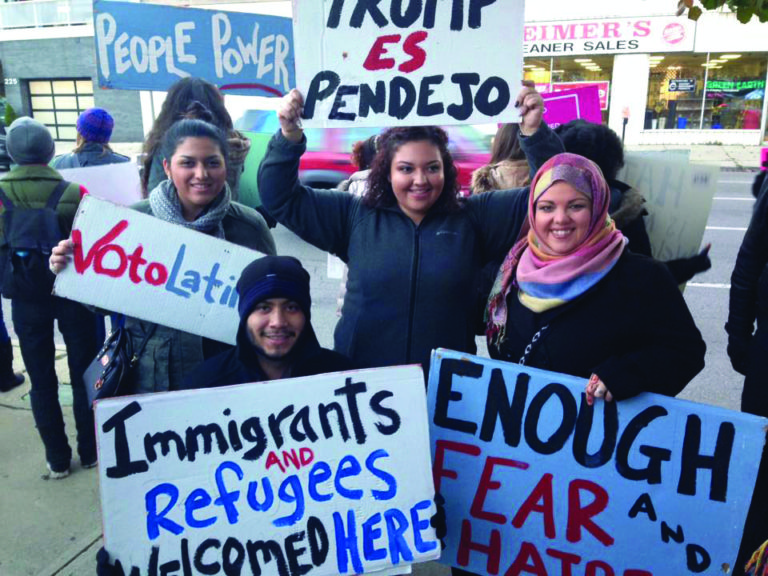 PEOPLE POWER
TRUMP
ES
PENDEJO
EIMER'S
EANER SALES
GREEN EARTH
225
VOTO LATIN
IMMIGRANTS
AND
REFUGEES
WELCOMED HERE
ENOUGH
FEAR AND
HATRE